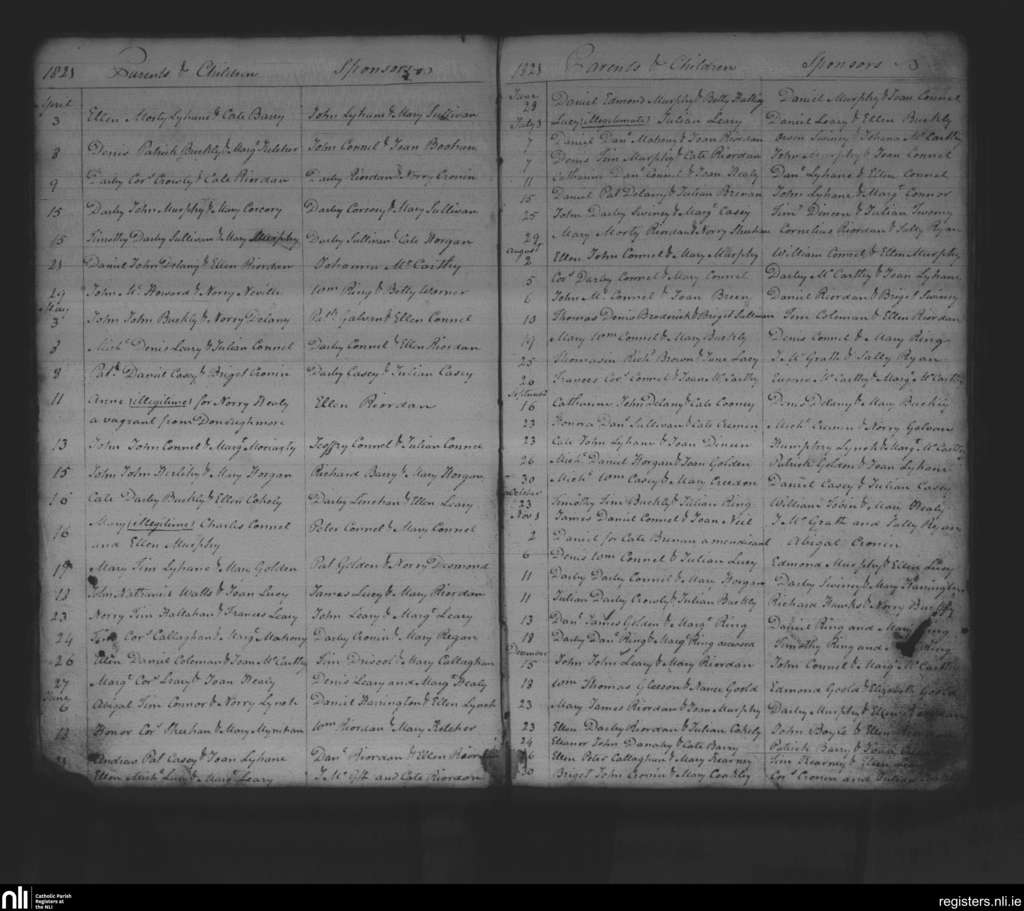 1821 Parents & Children Sponsors
April
3 Ellen Morty Lyhane & Cate Barry John Lyhane & Mary Sullivan
8 Denis Patrick Buckly & Margt Kelcher John Connel & Joan Boohan
9 Darby Cors Crowly & Cate Riordan Darby Riordan & Norry Cronin
15 Darby John Murphy & Mary Corcory Darby Corcory & Mary Sullivan
15 Timothy Darby Sullivan & Mary Murphy Darby Sullivan Cate Horgan
21 Daniel John Delany & Ellen Riordan Johanna Mc Carthy
29 John Howard & Norry Neville Wm Ring & Betty Warner
May
3 John John Buckly & Norry Delany Patk Galvin & Ellen Connel
8 Michl Denis Leary & Julian Connel Darby Connel & Ellen Riordan
8 Patk Daniel Casey & Briget Cronin Darby Casey & Julian Casey
11 Anne (illegitime) for Norry Healy Ellen Riordan
a vagrant from Donoughmore
13 John John Connel & Margt Moriarty Jeoffry Connel & Julian Connel
15 John John Herlihy & Mary Horgan Richard Barry & Mary Horgan
16 Cate Darby Buckly & Ellen Cokely Darby Linehan & Ellen Leary
16 Mary (illegitime) Charles Connel Peter Connel & Mary Connel
and Ellen Murphy
17 Mary Tim Lyhane & Mary Golden Pat Golden & Norry Desmond
18 John Nathaniel Walls & Joan Lucy James Lucey & Mary Riordan
23 Norry Tim Hallahan & Frances Leary John Leary & Margt Leary
24 Cors Callaghan & Mary Mahony Darby Cronin & Mary Regan
26 Ellen Daniel Coleman & Joan Mc Carthy Tim Driscol & Mary Callaghan
27 Margt Cors Leary & Joan Healy Denis Leary and Margt Healy
June
6 Abigal Tim Connor & Norry Lynch Daniel Harington & Ellen Lynch
Honor Cors Sheehan & Mary Mynihan Wm Riordan & Mary Kelcher
Andrias Pat Casey & Joan Lyhane Danl Riordan & Ellen
Ellen Michl & Margt Leary and Cate Riordan
1821 Parents & Children Sponsors
June
28 Daniel Edmond Murphy & Betty Daniel Murphy & Joan Connel
July 3 Lucy (illegitimate) Julian Leary Daniel Leary & Ellen Buckly
7 Daniel Danl Mahony & Joan Riordan Owen Swiney & Johana Mc Carthy
7 Denis Tim Murphy & Cate Riordan John Murphy & Joan Connel
11 Catharine Danl Connel & Joan Healy Danl Lyhane & Ellen Connel
15 Daniel Pat Delany & Julian Brenan John Lyhane & Margt Connor
25 John Darby Swiney & Margt Casey Timy Dineen & Julian Twomy
29 Mary Morty Riordan & Norry Sheehan Cornelius Riordan & Sally Ryan
August
2 Ellen John Connel & Mary Murphy William Connel & Ellen Murphy
5 Cors Darby Connel & Mary Connel Darby Mc Carthy & Joan Lyhane
6 John M. Connel & Joan Breen Daniel Riordan & Briget Swiney
13 Thomas Denis Broderick & Briget Sullivan Tim Coleman & Ellen Riordan
19 Mary Wm Connel & Mary Buckly Denis Connel & Mary Ring
25 Thomasin Richd Brown & June Lacy J. Mc Grath & Sally Ryan
20 Frances Cors Connel & Joan Mc Carthy Eugene Mc Carthy & Margt Mc Carthy
September
16 Catharine John Delany & Cate Cooney Denis Delany & Mary Buckly
23 Honora Danl Sullivan & Cate Cremin Michl Cremin & Norry Galvan
23 Cate John Lyhane & Joan Dineen Humphry Lynch & Margt Mc Carthy
26 Michl Daniel Horgan & Joan Golden Patrick Golden & Joan Lyhane
30 Michl Wm Casey & Mary Creedon Daniel Casey & Julian Casey
October
23 Timothy Tim Buckly & Julian Ring William Tobin & Mary Healy
Nov 1 James Daniel Connel & Joan Neil J. Mc Grath and Sally Ryan
2 Daniel for Cate Brenan a mendicant Abigal Cronin
6 Denis Wm Connel & Julian Lucy Edmond Murphy & Ellen Lucy
11 Darby Darby Connel & Mary Horgan Darby Swiney & Mary Harrington
11 Julian Darby Crowly & Julian Buckly Richard Hawks & Norry
13 Danl James Golden & Margt Ring Daniel Ring and Mary Ring
18 Darby Danl Ring & Margt Ring Timothy Ring and Ring
December
15 John John Leary & Mary Riordan John Connel & Margt Mc Carthy
18 Wm Thomas Gleeson & Nance Goold Edmond Goold & Elizabeth Goold
23 Mary James Riordan & Joan Murphy Darby Murphy & Ellen
23 Ellen Darby Riordan & Julian Cokely John Boyle & Ellen
24 Eleanor John Danahy & Cate Barry Patrick Barry &
26 Ellen Peter Callaghan & Mary Kearney Tim Kearney & Ellen
30 Briget John Cronin & Mary Coakley Cors Cronin and Julian
nli Catholic Parish
Registers at
the NLI
registers.nli.ie